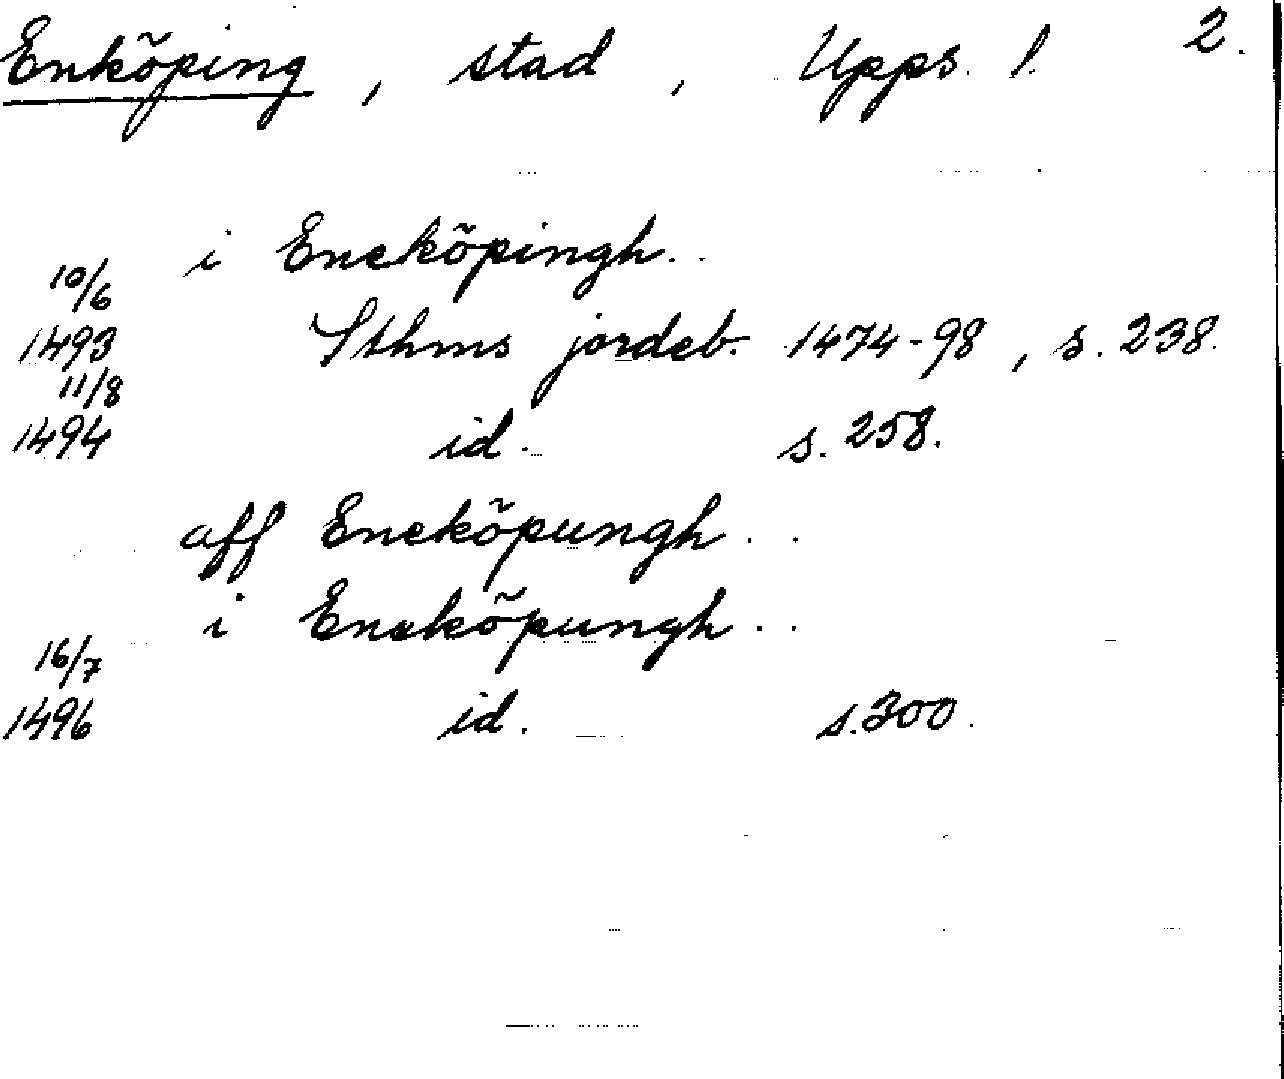 Enköping, stad, Upps. l. 2.
i Eneköpingh..
10/6
1493 Sthms jordeb. 1474-98, s. 238.
11/8
1494 id. s. 258.
aff Eneköpungh..
i Eneköpungh..
16/7
1496 id. s. 300.